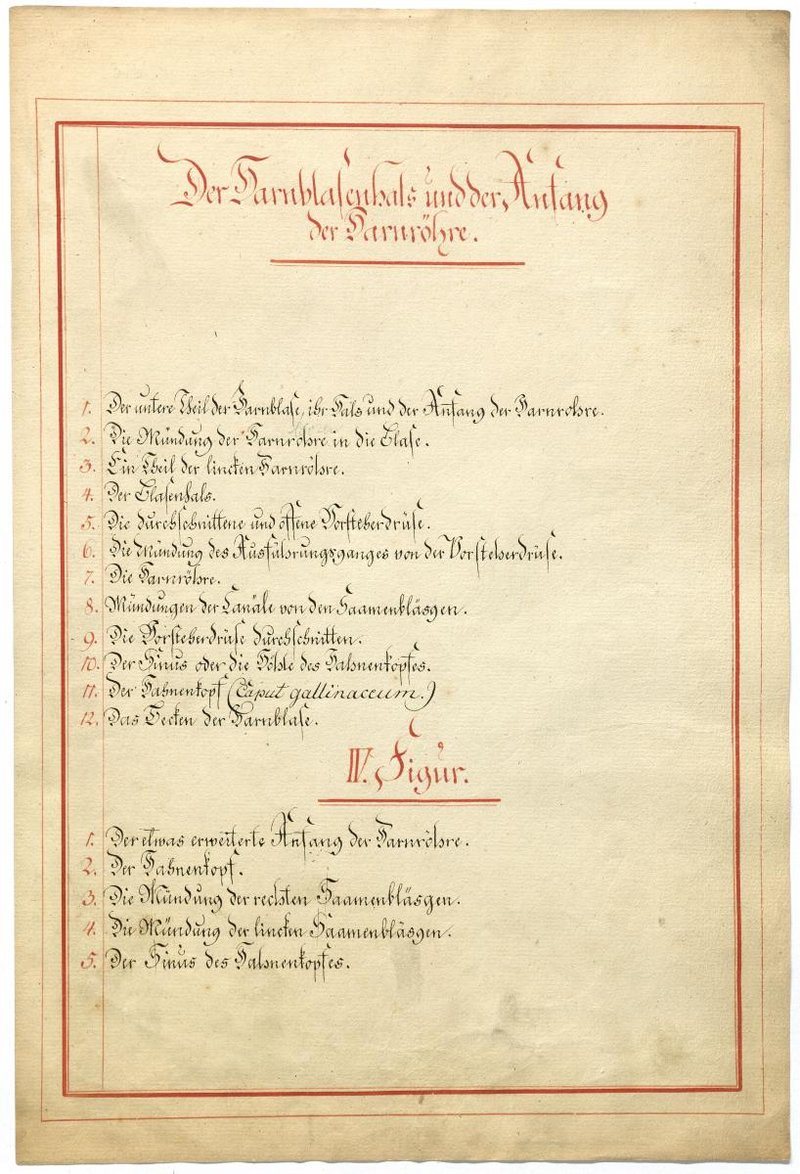 Der Harnblasenhals und der Anfang
der Harnröhre.
1. Der untere Theil der Harnblase, ihr Hals und der Anfang der Harnrohre.
2. Die Mündung der Harnrohre in die Blase.
3. Ein Theil der lincken Harnröhre.
4. Der Blasenhals.
5. Die durchschnittene und offene Vorsteherdrüse.
6. Die Mündung des Ausführungsganges von der Vorsteherdrüse.
7. Die Harnröhre.
8. Mündungen der Canäle von den Saamenbläsgen.
9. Die Vorsteherdrüse durchschnitten.
10. Der Sinus oder die Höhle des Hahnenkopfes.
11. Der Hahnenkopf (Caput gallinaceum.)
12. Das Becken der Harnblase.
IV. Figur.
1. Der etwas erweiterte Anfang der Harnröhre.
2. Der Hahnenkopf.
3. Die Mündung der rechten Saamenbläsgen.
4. Die Mündung der lincken Saamenbläsgen.
5. Der Sinus des Hahnenkopfes.